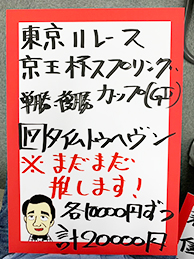 東京11レース
京王杯スプリング
単勝・複勝 カップ(GⅡ)
17 タイムトゥヘヴン
※まだまだ
推します!
各10000円ずつ
計20000円